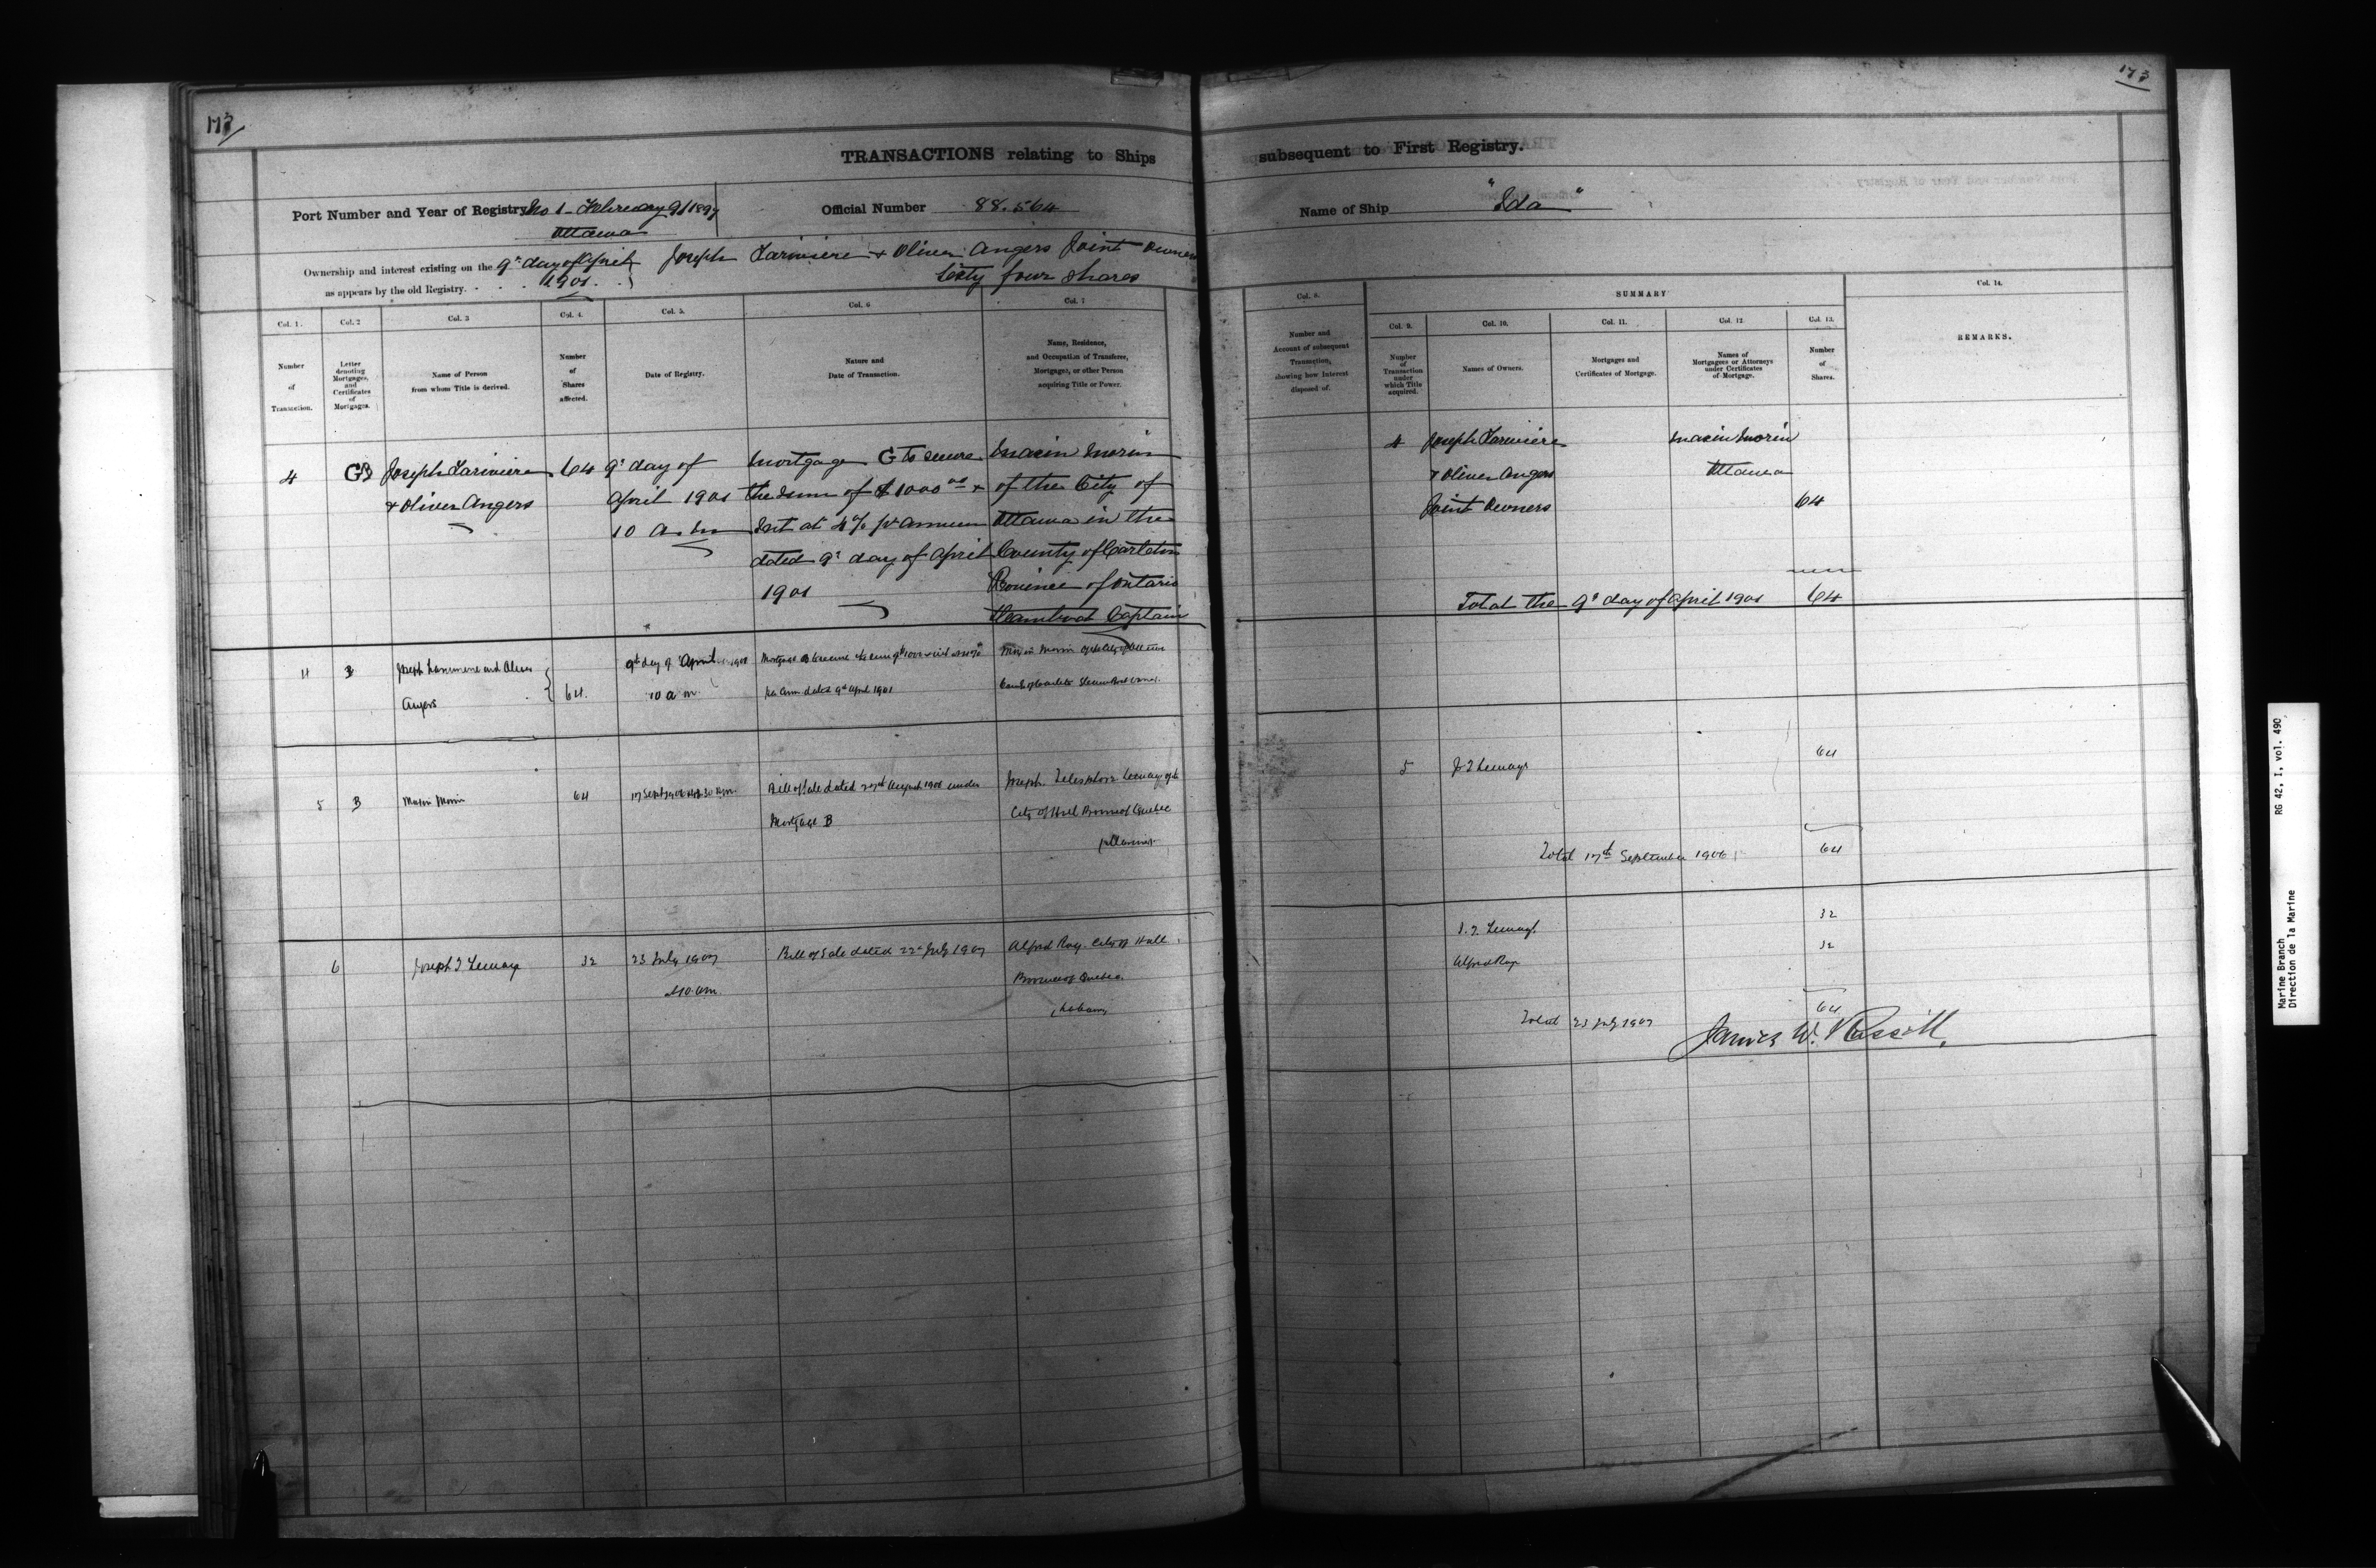 173
173
TRANSACTIONS relating to Ships subsequent to First Registry.
Port Number and Year of Registry No 1 - February 9/1897
Ottawa
Official Number 88.564
Name of Ship "Ida"
Ownership and interest existing on the 9th day of April
as appears by the old Registry. 1901.
Joseph Lariviere & Oliver Angers Joint Owners
Sixty four shares
Col. 1.
Number
of
Transaction.
Col. 2
Letter
denoting
Mortgages,
and
Certificates
of
Mortgages.
Col. 3
Name of Person
from whom Title is derived.
Col. 4.
Number
of
Shares
affected.
Col. 5.
Date of Registry.
Col. 6
Nature and
Date of Transaction.
Col. 7
Name, Residence,
and Occupation of Transferee,
Mortgagee, or other Person
acquiring Title or Power.
Col. 8.
Number and
Account of subsequent
Transaction,
showing how Interest
disposed of.
SUMMARY
Col. 9.
Number
of
Transaction
under
which Title
acquired.
Col. 10.
Names of Owners.
Col. 11.
Mortgages and
Certificates of Mortgage.
Col. 12.
Names of
Mortgagees or Attorneys
under Certificates
of Mortgage.
Col. 13.
Number
of
Shares.
Col. 14.
REMARKS.
4
G B
Joseph Lariviere
& Oliver Angers
64
9th day of
April 1901
10 a.m
Mortgage G to secure
the sum of $1000 00 &
Int at 4% pr annum
dated 9th day of April
1901
Maxin Morin
of the City of
Ottawa in the
County of Carleton
Province of Ontario
Steamboat Captain
4
Joseph Lariviere
& Oliver Angers
Joint Owners
Maxin Morin
Ottawa
64
Total the 9th day of April 1901 64
4
B
Joseph Lariviere and Oliver
Angers
64.
9th day of April 1901
10 a m
Mortgage B to secure the sum of $1000
per ann. dated 9th April 1901
Maxin Morin of the City of Ottawa
5
B
Maxin Morin
64
17 Sept 1906
Bill of Sale dated 27th August 1906 under
Mortgage B
Joseph Telesphore Lemay of the
City of Hull Province of Quebec
5
J T Lemay
64
Total 17th September 1906 64
6
Joseph T Lemay
32
23 July 1907
at 10 am.
Bill of Sale dated 22nd July 1907
Alfred Roy City of Hull
Province of Quebec
J. T. Lemay
32
Alfred Roy
32
Total 23 July 1907 64
James W. Russell.
RG 42, I, vol. 490
Marine Branch
Direction de la Marine